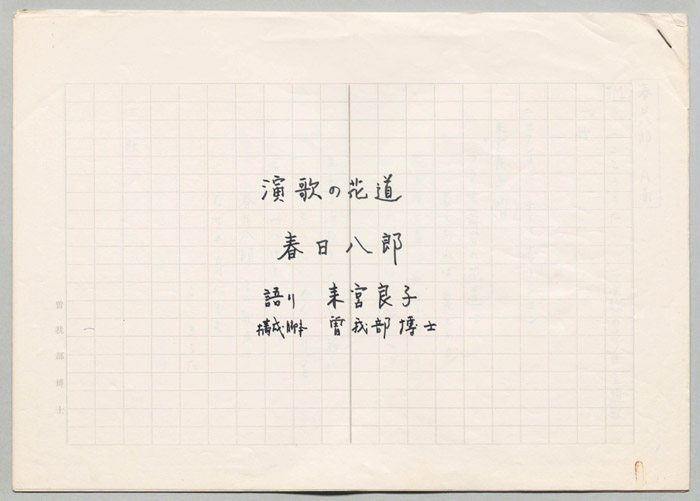 演歌の花道
春日八郎
語り 来宮良子
構成・脚本 曽我部博士
曽我部博士